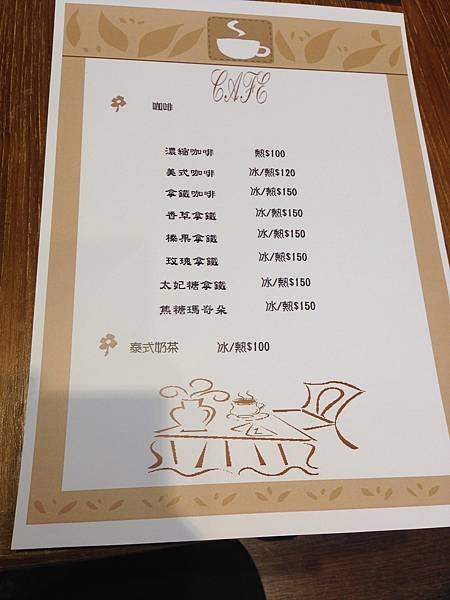 CAFE
咖啡
濃縮咖啡 熱$100
美式咖啡 冰/熱$120
拿鐵咖啡 冰/熱$150
香草拿鐵 冰/熱$150
榛果拿鐵 冰/熱$150
玫瑰拿鐵 冰/熱$150
太妃糖拿鐵 冰/熱$150
焦糖瑪奇朵 冰/熱$150
泰式奶茶 冰/熱$100